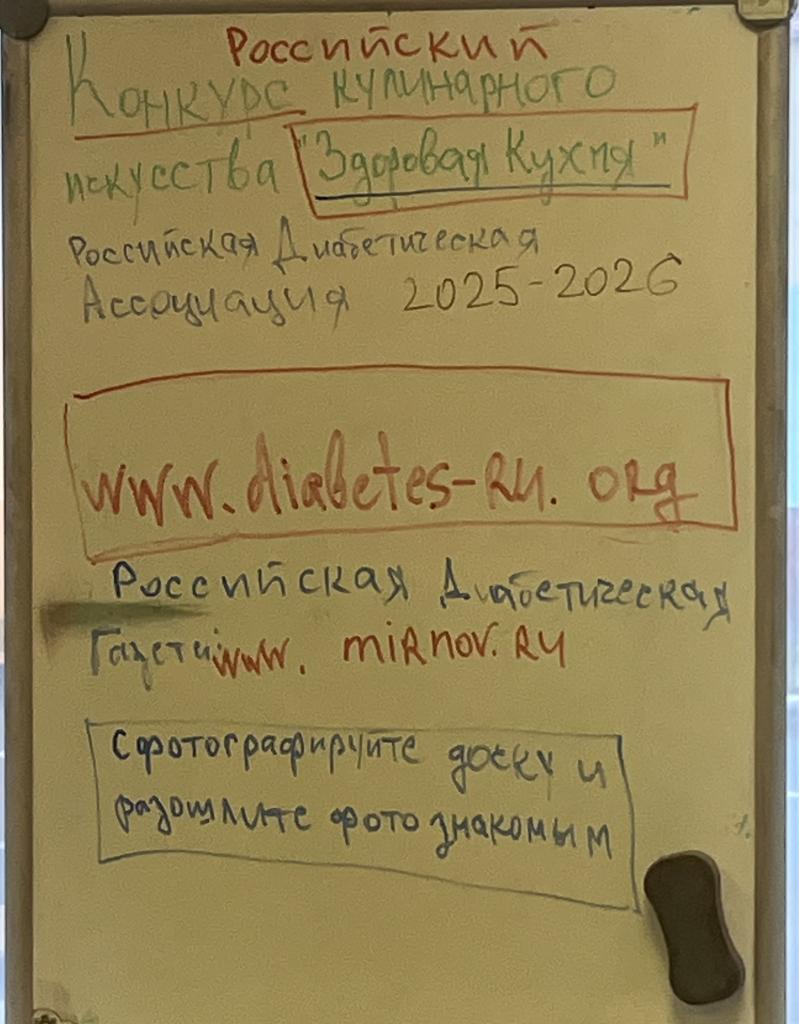 Российский
Конкурс кулинарного
искусства "Здоровая Кухня"
Российская Диабетическая
Ассоциация 2025-2026
www.diabetes-ru.org
Российская Диабетическая
www. mirnov.ru
Сфотографируйте доску и
разошлите фото знакомым